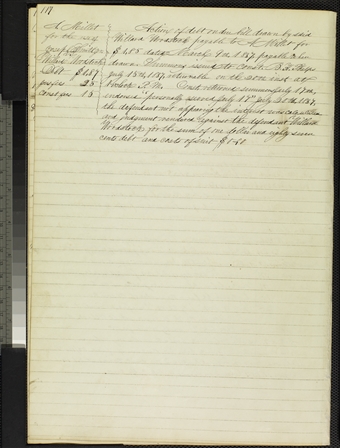 117
A Millot
for the use of
Joseph
vs
Willard Woodcock
Debt $1.87
judges 25
Const fees 13
Action of debt on due bill drawn by said
Willard Woodcock payable to A Millot for
$1.85 dated March 9th 1887 payable when
drawn Summons issued to Const. B.F. Phelps
July 13th 1887, returnable on the 20th inst at
o'clock P.M. Const returned summons July 17th,
endorsed personally served July 17th July 20th 1887,
the defendant not appearing the
and judgment rendered against the defendant Willard
Woodcock for the sum of one dollar and eighty seven
cents debt and costs of suit $1.40